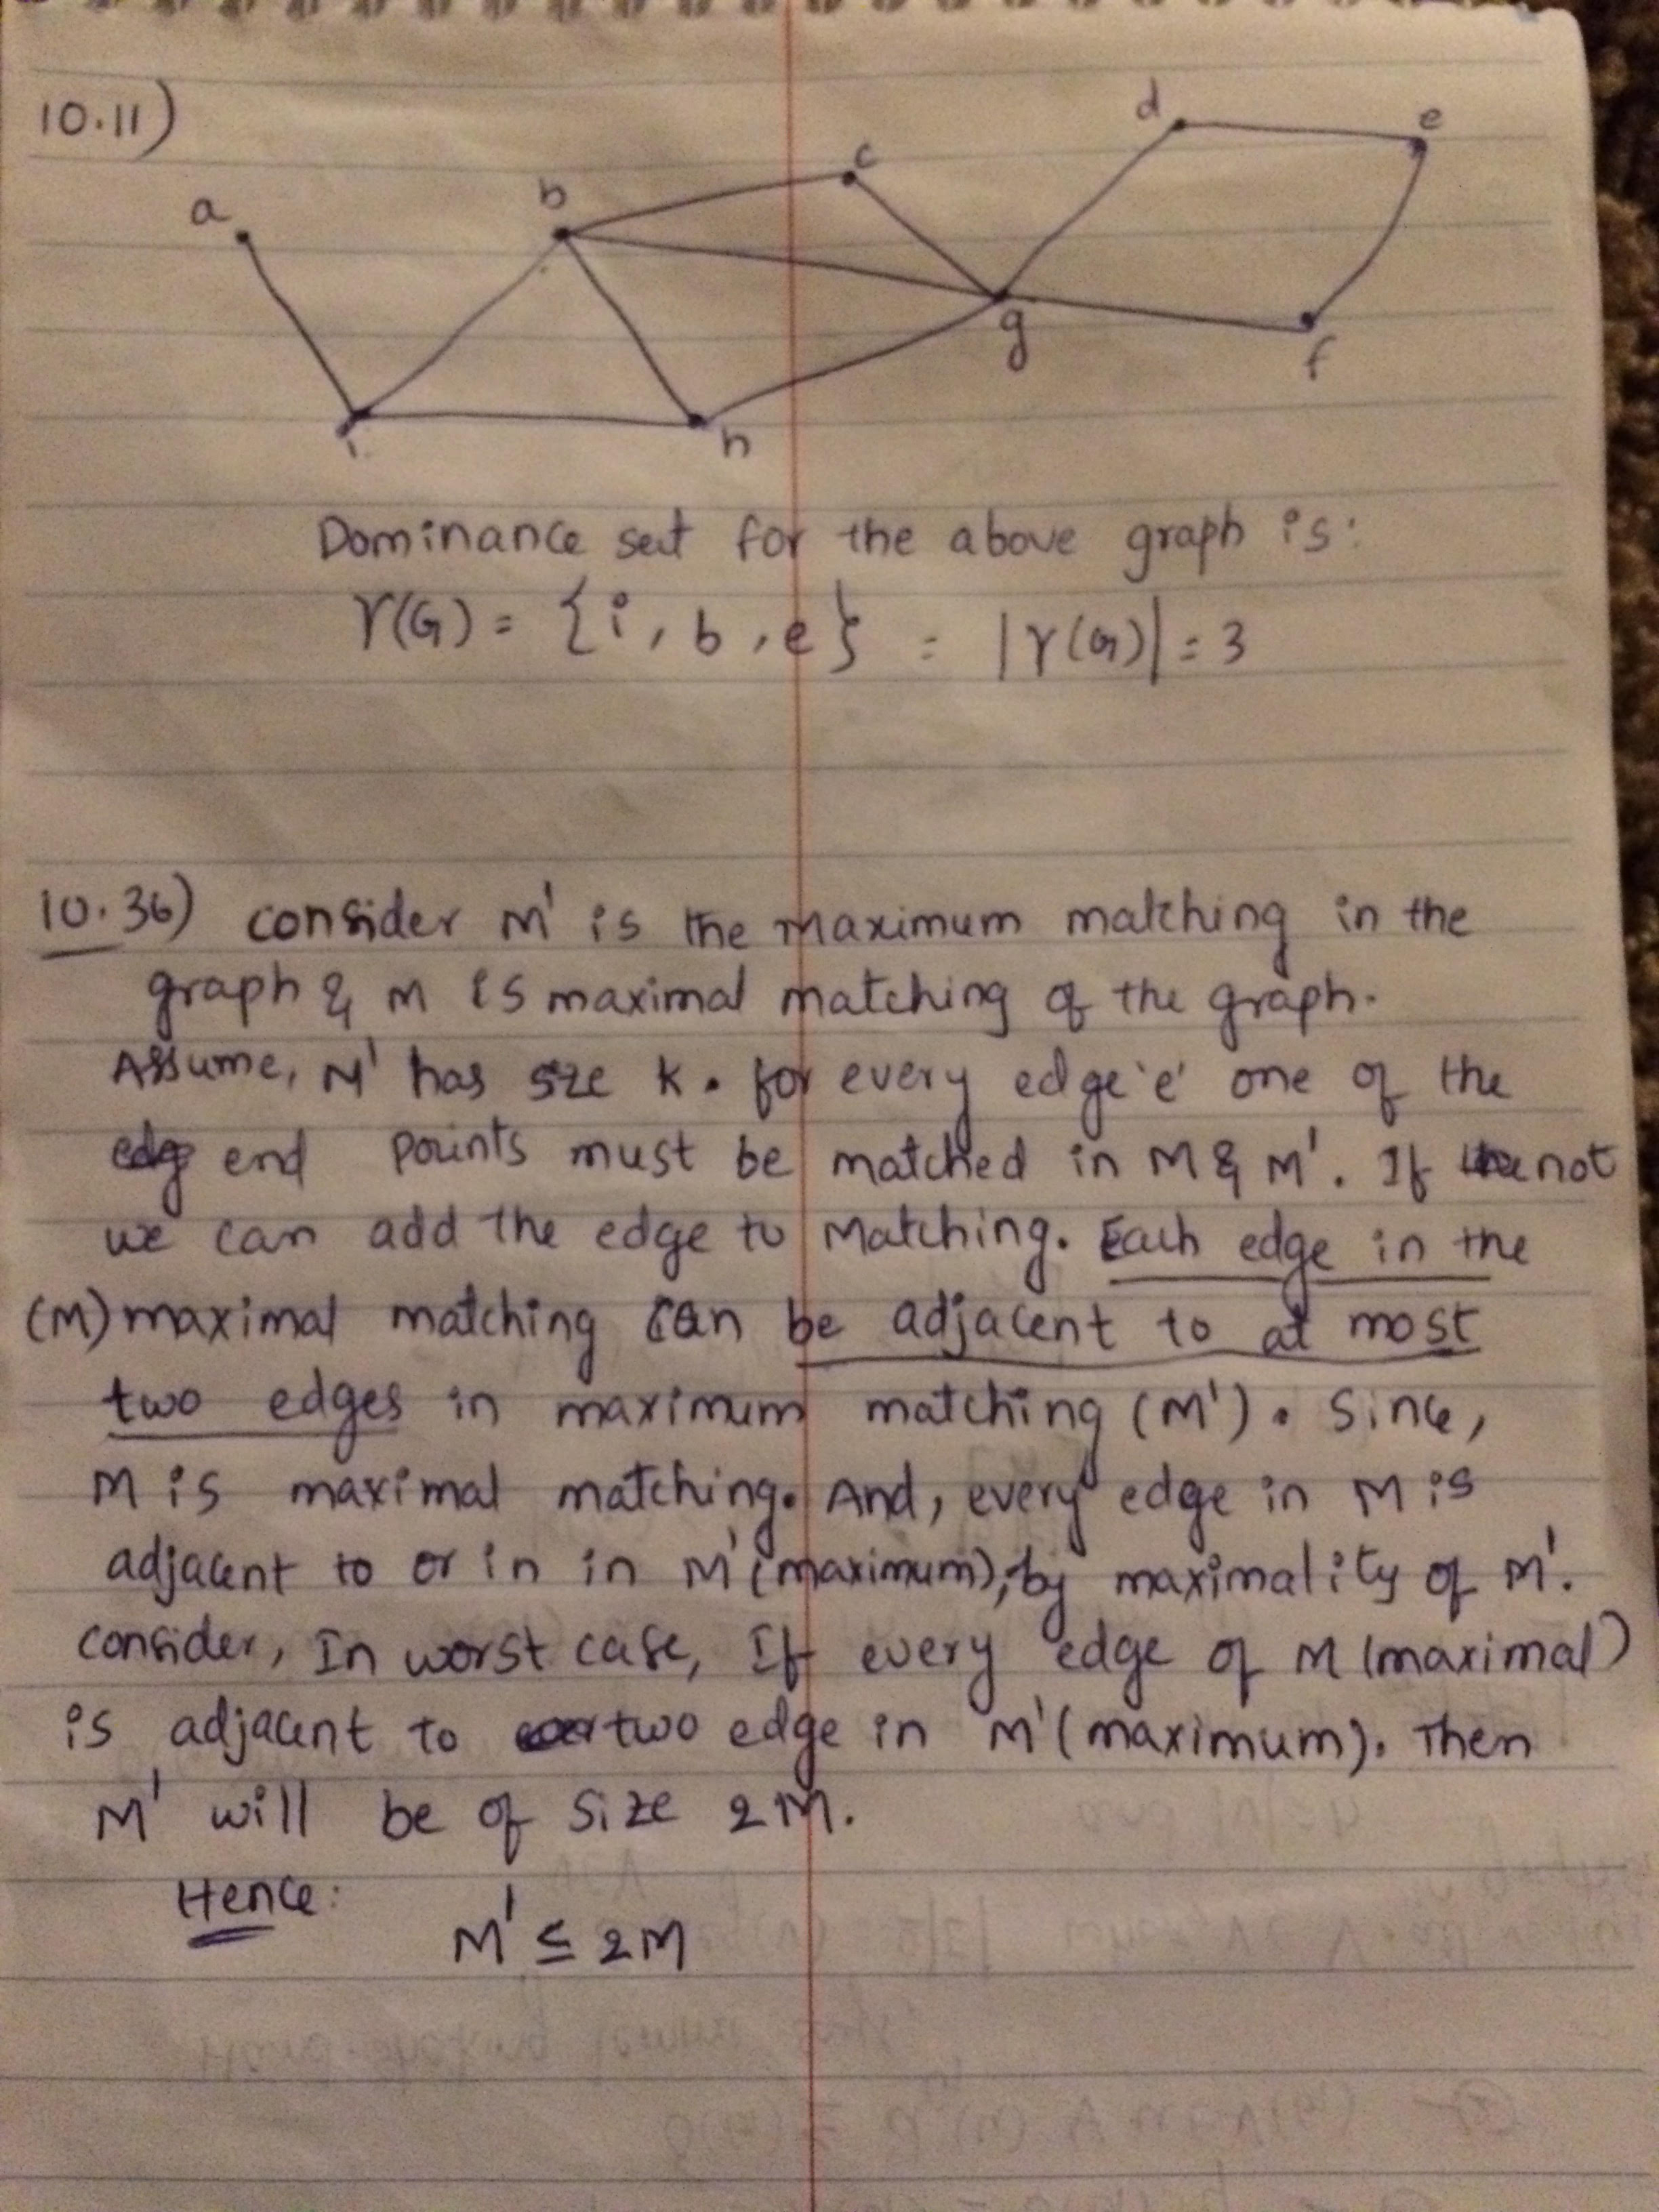 10.11)
a b c d e
i h g f
Dominance set for the above graph is:
γ(G) = {i, b, e} = |γ(G)| = 3
10.36) consider M' is the maximum matching in the
graph & M is maximal matching of the graph.
Assume, M' has size K. for every edge 'e' one of the
end points must be matched in M & M'. If not
we can add the edge to Matching. Each edge in the
(M) maximal matching can be adjacent to at most
two edges in maximum matching (M'). Since,
M is maximal matching. And, every edge in M is
adjacent to or in in M' (maximum), by maximality of M'.
consider, In worst case, If every edge of M (maximal)
is adjacent to two edge in M' (maximum). Then
M' will be of size 2M.
Hence:
M' ≤ 2M